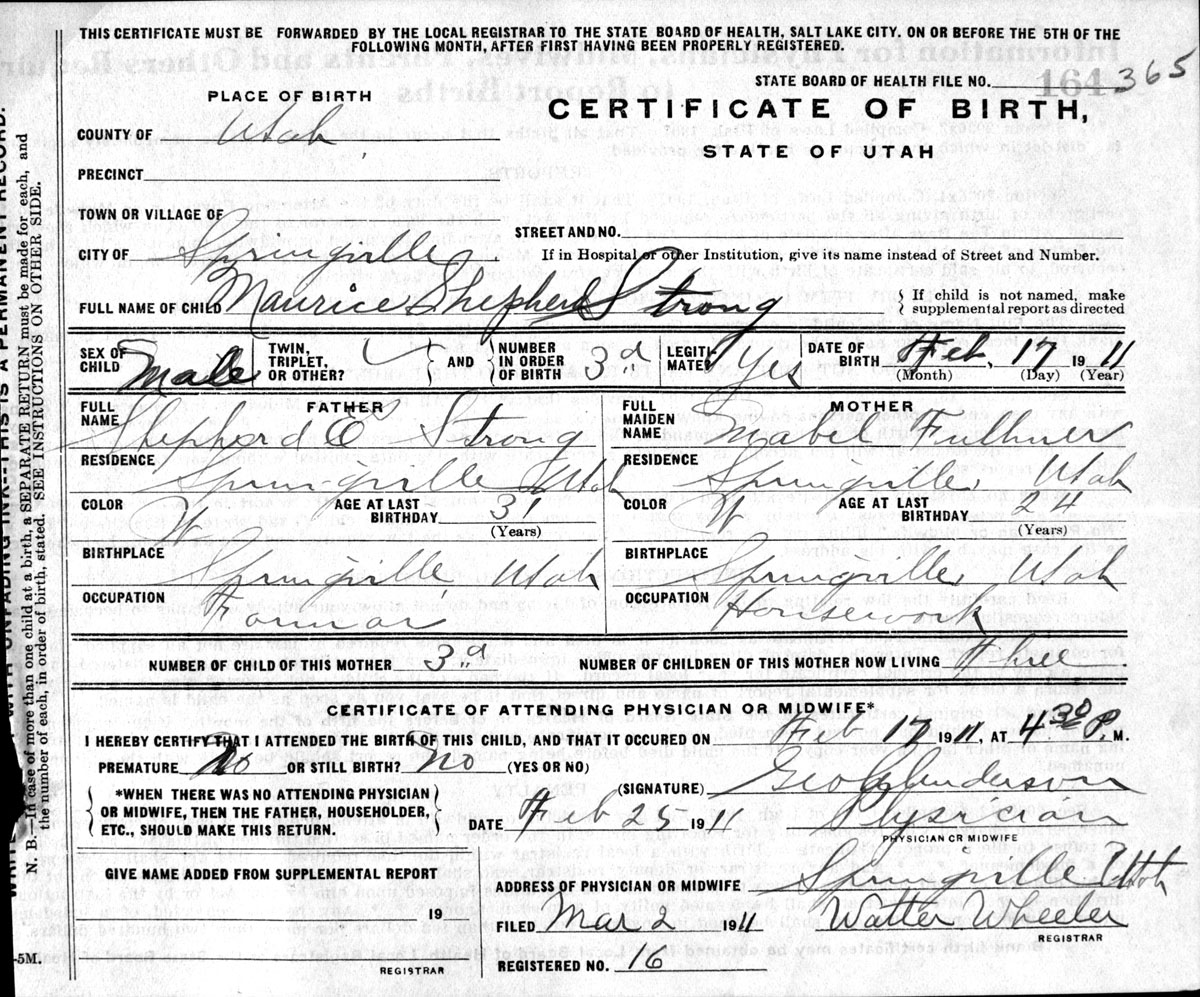 THIS CERTIFICATE MUST BE FORWARDED BY THE LOCAL REGISTRAR TO THE STATE BOARD OF HEALTH, SALT LAKE CITY, ON OR BEFORE THE 5TH OF THE
FOLLOWING MONTH, AFTER FIRST HAVING BEEN PROPERLY REGISTERED.
STATE BOARD OF HEALTH FILE NO. 164 365
PLACE OF BIRTH
CERTIFICATE OF BIRTH,
STATE OF UTAH
COUNTY OF Utah
PRECINCT
TOWN OR VILLAGE OF
STREET AND NO.
CITY OF Springville
If in Hospital or other Institution, give its name instead of Street and Number.
FULL NAME OF CHILD Maurice Shepherd Strong
If child is not named, make
supplemental report as directed
SEX OF
CHILD Male
TWIN,
TRIPLET,
OR OTHER?
AND
NUMBER
IN ORDER
OF BIRTH 3d
LEGITI-
MATE? Yes
DATE OF
BIRTH Feb, 17 1911
(Month) (Day) (Year)
FATHER
FULL
NAME Shepherd E Strong
RESIDENCE Springville Utah
COLOR W
AGE AT LAST
BIRTHDAY 31
(Years)
BIRTHPLACE Springville, Utah
OCCUPATION Farmer
MOTHER
FULL
MAIDEN
NAME Mabel Fulhner
RESIDENCE Springville, Utah
COLOR W
AGE AT LAST
BIRTHDAY 24
(Years)
BIRTHPLACE Springville, Utah
OCCUPATION Housework
NUMBER OF CHILD OF THIS MOTHER 3d
NUMBER OF CHILDREN OF THIS MOTHER NOW LIVING Three
CERTIFICATE OF ATTENDING PHYSICIAN OR MIDWIFE*
I HEREBY CERTIFY THAT I ATTENDED THE BIRTH OF THIS CHILD, AND THAT IT OCCURED ON Feb 17 1911, AT 4 30 P. M.
PREMATURE No OR STILL BIRTH? No (YES OR NO)
(SIGNATURE) Geo Anderson
*WHEN THERE WAS NO ATTENDING PHYSICIAN
OR MIDWIFE, THEN THE FATHER, HOUSEHOLDER,
ETC., SHOULD MAKE THIS RETURN.
DATE Feb 25 1911 Physician
PHYSICIAN OR MIDWIFE
GIVE NAME ADDED FROM SUPPLEMENTAL REPORT
19
REGISTRAR
ADDRESS OF PHYSICIAN OR MIDWIFE Springville Utah
FILED Mar 2 1911 Walter Wheeler
REGISTRAR
REGISTERED NO. 16
-5M.
INK-THIS IS A PERMANENT RECORD.
N. B.—In case of more than one child at a birth, a SEPARATE RETURN must be made for each, and
the number of each, in order of birth, stated. SEE INSTRUCTIONS ON OTHER SIDE.